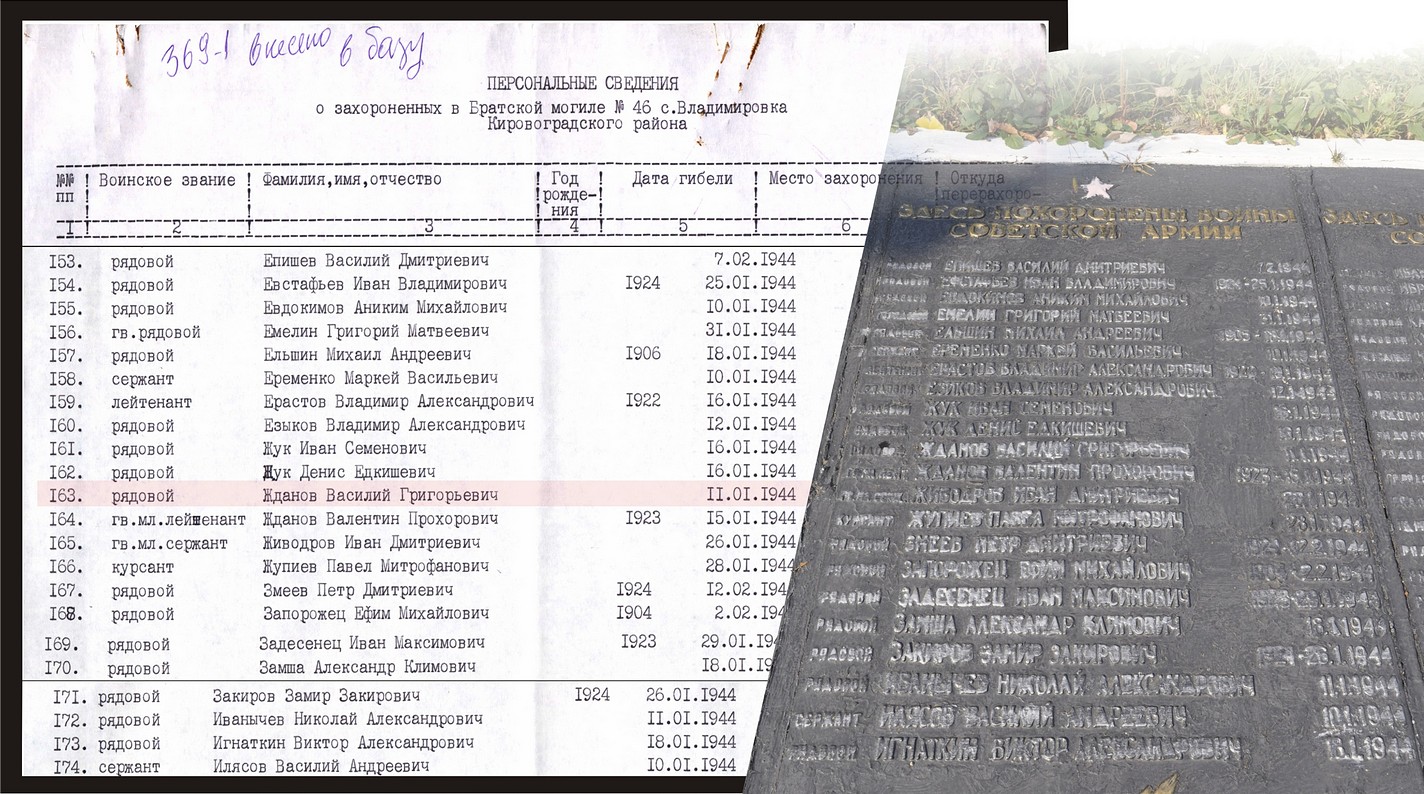 369-1 внесено в базу
ПЕРСОНАЛЬНЫЕ СВЕДЕНИЯ
о захороненных в Братской могиле № 46 с.Владимировка
Кировоградского района
№№ пп ! Воинское звание ! Фамилия,имя,отчество ! Год рожде-ния ! Дата гибели ! Место захоронения ! Откуда перерахоро-
I ! 2 ! 3 ! 4 ! 5 ! 6
I53. рядовой Епишев Василий Дмитриевич 7.02.I944
I54. рядовой Евстафьев Иван Владимирович I924 25.0I.I944
I55. рядовой Евдокимов Аниким Михайлович I0.0I.I944
I56. гв.рядовой Емелин Григорий Матвеевич 3I.0I.I944
I57. рядовой Ельшин Михаил Андреевич I906 I8.0I.I944
I58. сержант Еременко Маркей Васильевич I0.0I.I944
I59. лейтенант Ерастов Владимир Александрович I922 I6.0I.I944
I60. рядовой Езыков Владимир Александрович I2.0I.I944
I6I. рядовой Жук Иван Семенович I6.0I.I944
I62. рядовой Жук Денис Едкишевич I6.0I.I944
I63. рядовой Жданов Василий Григорьевич II.0I.I944
I64. гв.мл.лейшенант Жданов Валентин Прохорович I923 I5.0I.I944
I65. гв.мл.сержант Живодров Иван Дмитриевич 26.0I.I944
I66. курсант Жупиев Павел Митрофанович 28.0I.I944
I67. рядовой Змеев Петр Дмитриевич I924 I2.02.I944
I68. рядовой Запорожец Ефим Михайлович I904 2.02.I944
I69. рядовой Задесенец Иван Максимович I923 29.0I.I94
I70. рядовой Замша Александр Климович I8.0I.I9
I7I. рядовой Закиров Замир Закирович I924 26.0I.I944
I72. рядовой Иванычев Николай Александрович II.0I.I944
I73. рядовой Игнаткин Виктор Александрович I8.0I.I944
I74. сержант Илясов Василий Андреевич I0.0I.I944
ЗДЕСЬ ПОХОРОНЕНЫ ВОИНЫ
СОВЕТСКОЙ АРМИИ
ЕПИШЕВ ВАСИЛИЙ ДМИТРИЕВИЧ 7.2.1944
ЕВСТАФЬЕВ ИВАН ВЛАДИМИРОВИЧ 25.1.1944
ЕВДОКИМОВ АНИКИМ МИХАЙЛОВИЧ 10.1.1944
ЕМЕЛИН ГРИГОРИЙ МАТВЕЕВИЧ 31.1.1944
ЕЛЬШИН МИХАИЛ АНДРЕЕВИЧ
ЕРЕМЕНКО МАРКЕЙ ВАСИЛЬЕВИЧ 10.1.1944
ЕРАСТОВ ВЛАДИМИР АЛЕКСАНДРОВИЧ
ЕЗИКОВ ВЛАДИМИР АЛЕКСАНДРОВИЧ 12.1.1944
ЖУК ИВАН СЕМЕНОВИЧ
ЖУК ДЕНИС ЕДКИШЕВИЧ
ЖДАНОВ ВАСИЛИЙ ГРИГОРЬЕВИЧ
ЖДАНОВ ВАЛЕНТИН ПРОХОРОВИЧ
ЖИВОДРОВ ИВАН ДМИТРИЕВИЧ
КУРСАНТ ЖУПИЕВ ПАВЕЛ МИТРОФАНОВИЧ
РЯДОВОЙ ЗМЕЕВ ПЕТР ДМИТРИЕВИЧ
РЯДОВОЙ ЗАПОРОЖЕЦ ЕФИМ МИХАЙЛОВИЧ
РЯДОВОЙ ЗАДЕСЕНЕЦ ИВАН МАКСИМОВИЧ
РЯДОВОЙ ЗАМША АЛЕКСАНДР КЛИМОВИЧ
РЯДОВОЙ ЗАКИРОВ ЗАМИР ЗАКИРОВИЧ
РЯДОВОЙ ИВАНЫЧЕВ НИКОЛАЙ АЛЕКСАНДРОВИЧ 11.1.1944
СЕРЖАНТ ИЛЯСОВ ВАСИЛИЙ АНДРЕЕВИЧ 10.1.1944
РЯДОВОЙ ИГНАТКИН ВИКТОР АЛЕКСАНДРОВИЧ 18.1.1944